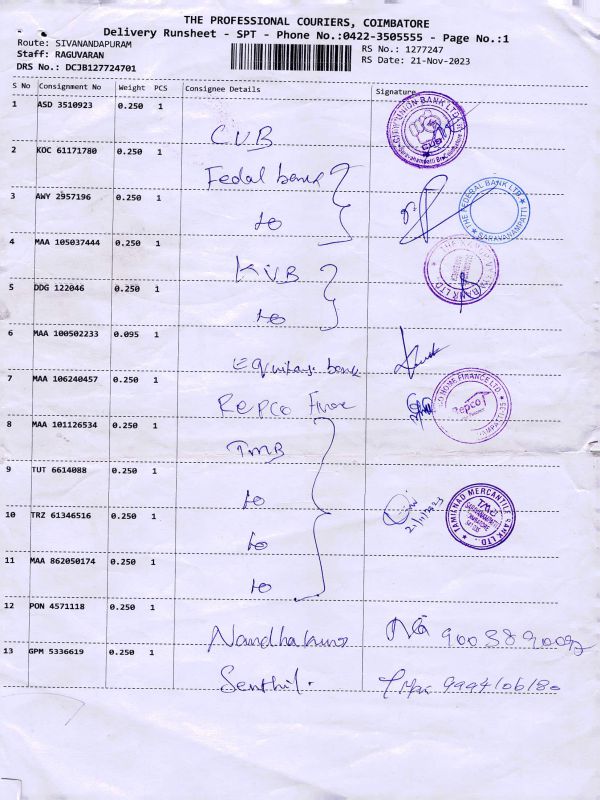 THE PROFESSIONAL COURIERS, COIMBATORE
Delivery Runsheet - SPT - Phone No.:0422-3505555 - Page No.:1
Route: SIVANANDAPURAM
RS No.: 1277247
Staff: RAGUVARAN
RS Date: 21-Nov-2023
DRS No.: DCJB127724701
S No Consignment No Weight PCS Consignee Details Signature
1 ASD 3510923 0.250 1 CUB
CITY UNION BANK LTD
CUB
2 KOC 61171780 0.250 1 Fedal bank
3 AWY 2957196 0.250 1 to
THE FEDERAL BANK LTD
SARAVANAMPATTI
4 MAA 105037444 0.250 1 KVB
BANK LTD
5 DDG 122046 0.250 1 to
6 MAA 100502233 0.095 1 Equitas bank
7 MAA 106240457 0.250 1 REPCO
HOME FINANCE LTD
Repco
8 MAA 101126534 0.250 1 TMB
9 TUT 6614088 0.250 1 to
10 TRZ 61346516 0.250 1 to
21/11/2023
TAMILNAD MERCANTILE BANK LTD
TMB
11 MAA 862050174 0.250 1 to
12 PON 4571118 0.250 1
13 GPM 5336619 0.250 1 Senthil.